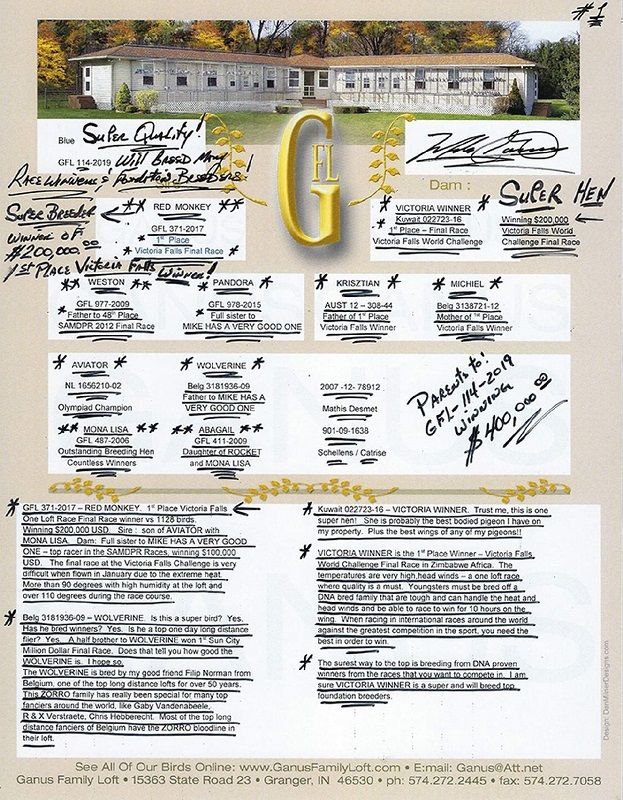 #1
Blue Super Quality!
GFL 114-2019 Will Breed Many
Race Winners & Foundation Breeders!
GFL
Dam :
Super Hen
Super Breeder
Winner of
$200,000.00
1st Place Victoria Falls Winner!
** RED MONKEY **
GFL 371-2017
1st Place
Victoria Falls Final Race
* VICTORIA WINNER *
Kuwait 022723-16
* 1st Place – Final Race *
Victoria Falls World Challenge
Winning $200,000
Victoria Falls World
Challenge Final Race
* WESTON *
GFL 977-2009
Father to 48th Place
SAMDPR 2012 Final Race
* PANDORA *
GFL 978-2015
Full sister to
MIKE HAS A VERY GOOD ONE
* KRISZTIAN *
AUST 12 – 308-44
Father of 1st Place
Victoria Falls Winner
* MICHIEL *
Belg 3138721-12
Mother of 1st Place
Victoria Falls Winner
* AVIATOR *
NL 1656210-02
Olympiad Champion
** MONA LISA **
GFL 487-2006
Outstanding Breeding Hen
Countless Winners
* WOLVERINE *
Belg 3181936-09
Father to MIKE HAS A
VERY GOOD ONE
** ABAGAIL **
GFL 411-2009
Daughter of ROCKET
and MONA LISA
2007 -12- 78912
Mathis Desmet
901-09-1638
Schellens / Catrise
Parents to:
GFL-114-2019
Winning
$400,000.00
* GFL 371-2017 – RED MONKEY. 1st Place Victoria Falls
One Loft Race Final Race winner vs 1128 birds.
Winning $200 000 USD. Sire : son of AVIATOR with
MONA LISA. Dam: Full sister to MIKE HAS A VERY GOOD
ONE – top racer in the SAMDPR Races, winning $100,000
USD. The final race at the Victoria Falls Challenge is very
difficult when flown in January due to the extreme heat.
More than 90 degrees with high humidity at the loft and
over 110 degrees during the race course.
* Belg 3181936-09 – WOLVERINE. Is this a super bird? Yes.
Has he bred winners? Yes. Is he a top one day long distance
flier? Yes. A half brother to WOLVERINE won 1st Sun City
Million Dollar Final Race. Does that tell you how good the
WOLVERINE is. I hope so.
The WOLVERINE is bred by my good friend Filip Norman from
Belgium, one of the top long distance lofts for over 50 years.
This ZORRO family has really been special for many top
fanciers around the world, like Gaby Vandenabeele,
R & X Verstraete, Chris Hebberecht. Most of the top long
distance fanciers of Belgium have the ZORRO bloodline in
their loft.
* Kuwait 022723-16 – VICTORIA WINNER. Trust me, this is one
super hen! She is probably the best bodied pigeon I have on
my property. Plus the best wings of any of my pigeons!!
* VICTORIA WINNER is the 1st Place Winner – Victoria Falls
World Challenge Final Race in Zimbabwe Africa. The
temperatures are very high,head winds – a one loft race,
where quality is a must. Youngsters must be bred off a
DNA bred family that are tough and can handle the heat and
head winds and be able to race to win for 10 hours on the
wing. When racing in international races around the world
against the greatest competition in the sport, you need the
best in order to win.
* The surest way to the top is breeding from DNA proven
winners from the races that you want to compete in. I am
sure VICTORIA WINNER is a super and will breed top
foundation breeders.
Design: DenMilserDesigns.com
See All Of Our Birds Online: www.GanusFamilyLoft.com • E:mail: Ganus@Att.net
Ganus Family Loft • 15363 State Road 23 • Granger, IN 46530 • ph: 574.272.2445 • fax: 574.272.7058